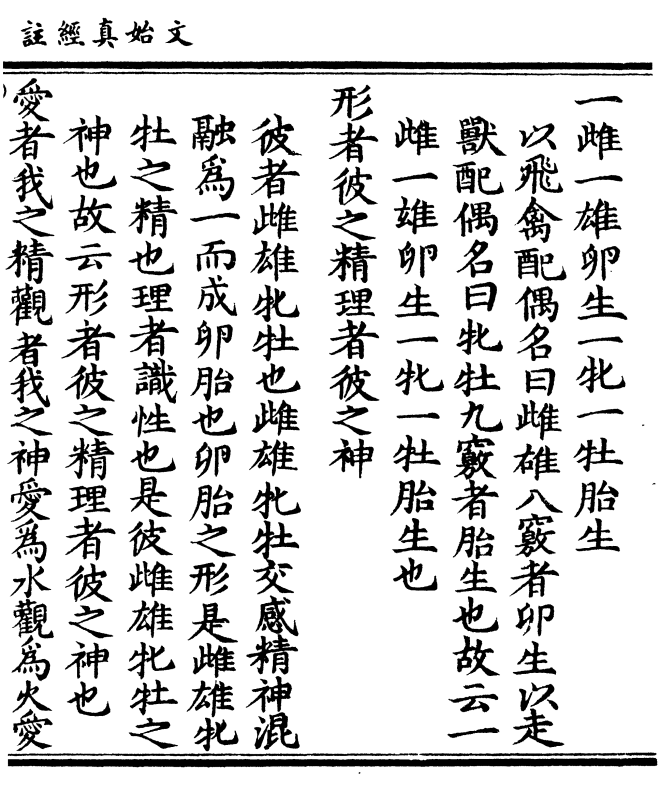 文始真經註
一雌一雄卵生一牝一牡胎生
以飛禽配偶名曰雌雄八竅者卵生以走
獸配偶名曰牝牡九竅者胎生也故云一
雌一雄卵生一牝一牡胎生也
形者彼之精理者彼之神
彼者雌雄牝牡也雌雄牝牡交感精神混
融爲一而成卵胎也卵胎之形是雌雄牝
牡之精也理者識性也是彼雌雄牝牡之
神也故云形者彼之精理者彼之神也
愛者我之精觀者我之神愛爲水觀爲火愛